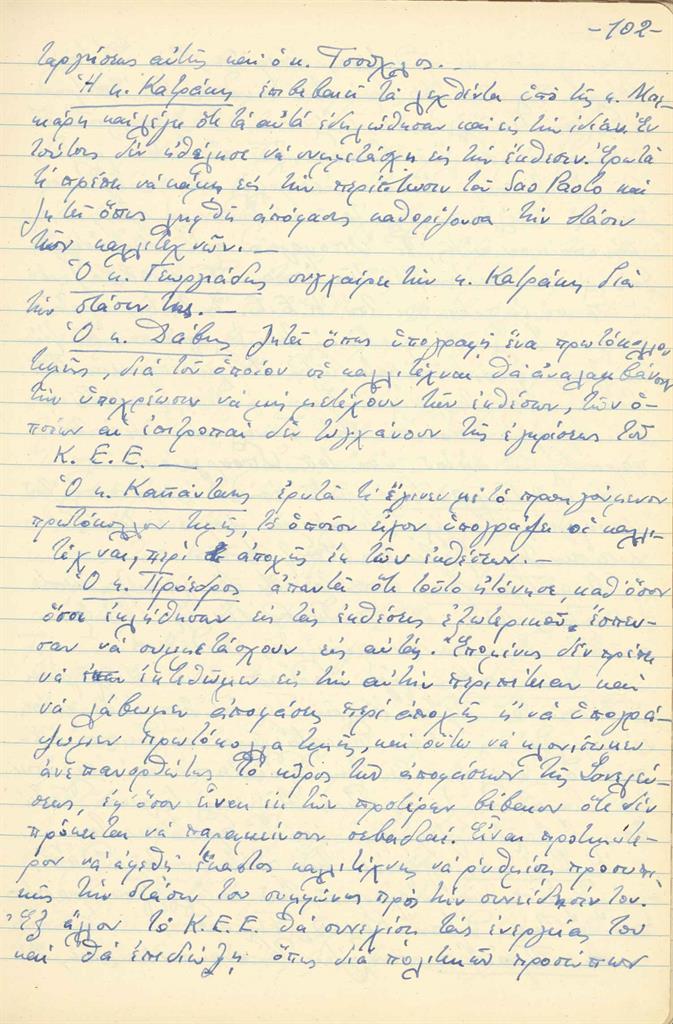 -102-
ταργήσεως αὐτῆς καὶ ὁ κ. Τσούχλος.—
Ἡ κ. Κατράκη ἐπιβεβαιοῖ τὰ λεχθέντα ὑπὸ τῆς κ.
καὶ λέγει ὅτι τὰ αὐτὰ ἐδηλώθησαν καὶ εἰς τὴν ἰδίαν. Ἐν
τούτοις δὲν ἠθέλησε νὰ συμμετάσχῃ εἰς τὴν ἔκθεσιν. Ἐρωτᾶ
τί πρέπει νὰ κάμῃ εἰς τὴν περίπτωσιν τοῦ Sao Paolo καὶ
ζητεῖ ὅπως ληφθῇ ἀπόφασις καθορίζουσα τὴν στάσιν
τῶν καλλιτεχνῶν.—
Ὁ κ. Γεωργιάδης συγχαίρει τὴν κ. Κατράκη διὰ
τὴν στάσιν της.—
Ὁ κ. Δάβης ζητεῖ ὅπως ὑπογραφῇ ἕνα πρωτόκολλον
τιμῆς, διὰ τοῦ ὁποίου οἱ καλλιτέχναι θὰ ἀναλαμβάνουν
τὴν ὑποχρέωσιν νὰ μὴ μετέχουν τῶν ἐκθέσεων, τῶν ὁ-
ποίων αἱ ἐπιτροπαὶ δὲν τυγχάνουν τῆς ἐγκρίσεως τοῦ
Κ.Ε.Ε.—
Ὁ κ. Καπάντα̈ης ἐρωτᾶ τί ἔγινεν μὲ τὸ προηγούμενον
πρωτόκολλον τιμῆς, τὸ ὁποῖον εἶχον ὑπογράψει οἱ καλλι-
τέχναι, περὶ ἀποχῆς ἐκ τῶν ἐκθέσεων.—
Ὁ κ. Πρόεδρος ἀπαντᾶ ὅτι τοῦτο ἠτόνησε, καθ' ὅσον
ὅσοι ἐκλήθησαν εἰς τὰς ἐκθέσεις ἐξωτερικοῦ, ἔσπευ-
σαν νὰ συμμετάσχουν εἰς αὐτάς. Ἑπομένως δὲν πρέπει
νὰ ἐκτεθῶμεν εἰς τὴν αὐτὴν περιπέτειαν καὶ
νὰ λάβωμεν ἀποφάσεις περὶ ἀποχῆς ἢ νὰ ὑπογρά-
ψωμεν πρωτόκολλα τιμῆς, καὶ οὕτω νὰ κλονίσωμεν
ἀνεπανορθώτως τὸ κῦρος τῶν ἀποφάσεων τῆς Συνελεύ-
σεως, ἐφ' ὅσον εἶναι ἐκ τῶν προτέρων βέβαιον ὅτι δὲν
πρόκειται νὰ παραμείνουν σεβασταί. Εἶναι προτιμότε-
ρον νὰ ἀφεθῇ ἕκαστος καλλιτέχνης νὰ ρυθμίσῃ προσωπι-
κῶς τὴν στάσιν του συμφώνως πρὸς τὴν συνείδησίν του.
Ἐξ ἄλλου τὸ Κ.Ε.Ε. θὰ συνεχίσῃ τὰς ἐνεργείας του
καὶ θὰ ἐπιδιώξῃ ὅπως διὰ πολιτικῶν προσώπων